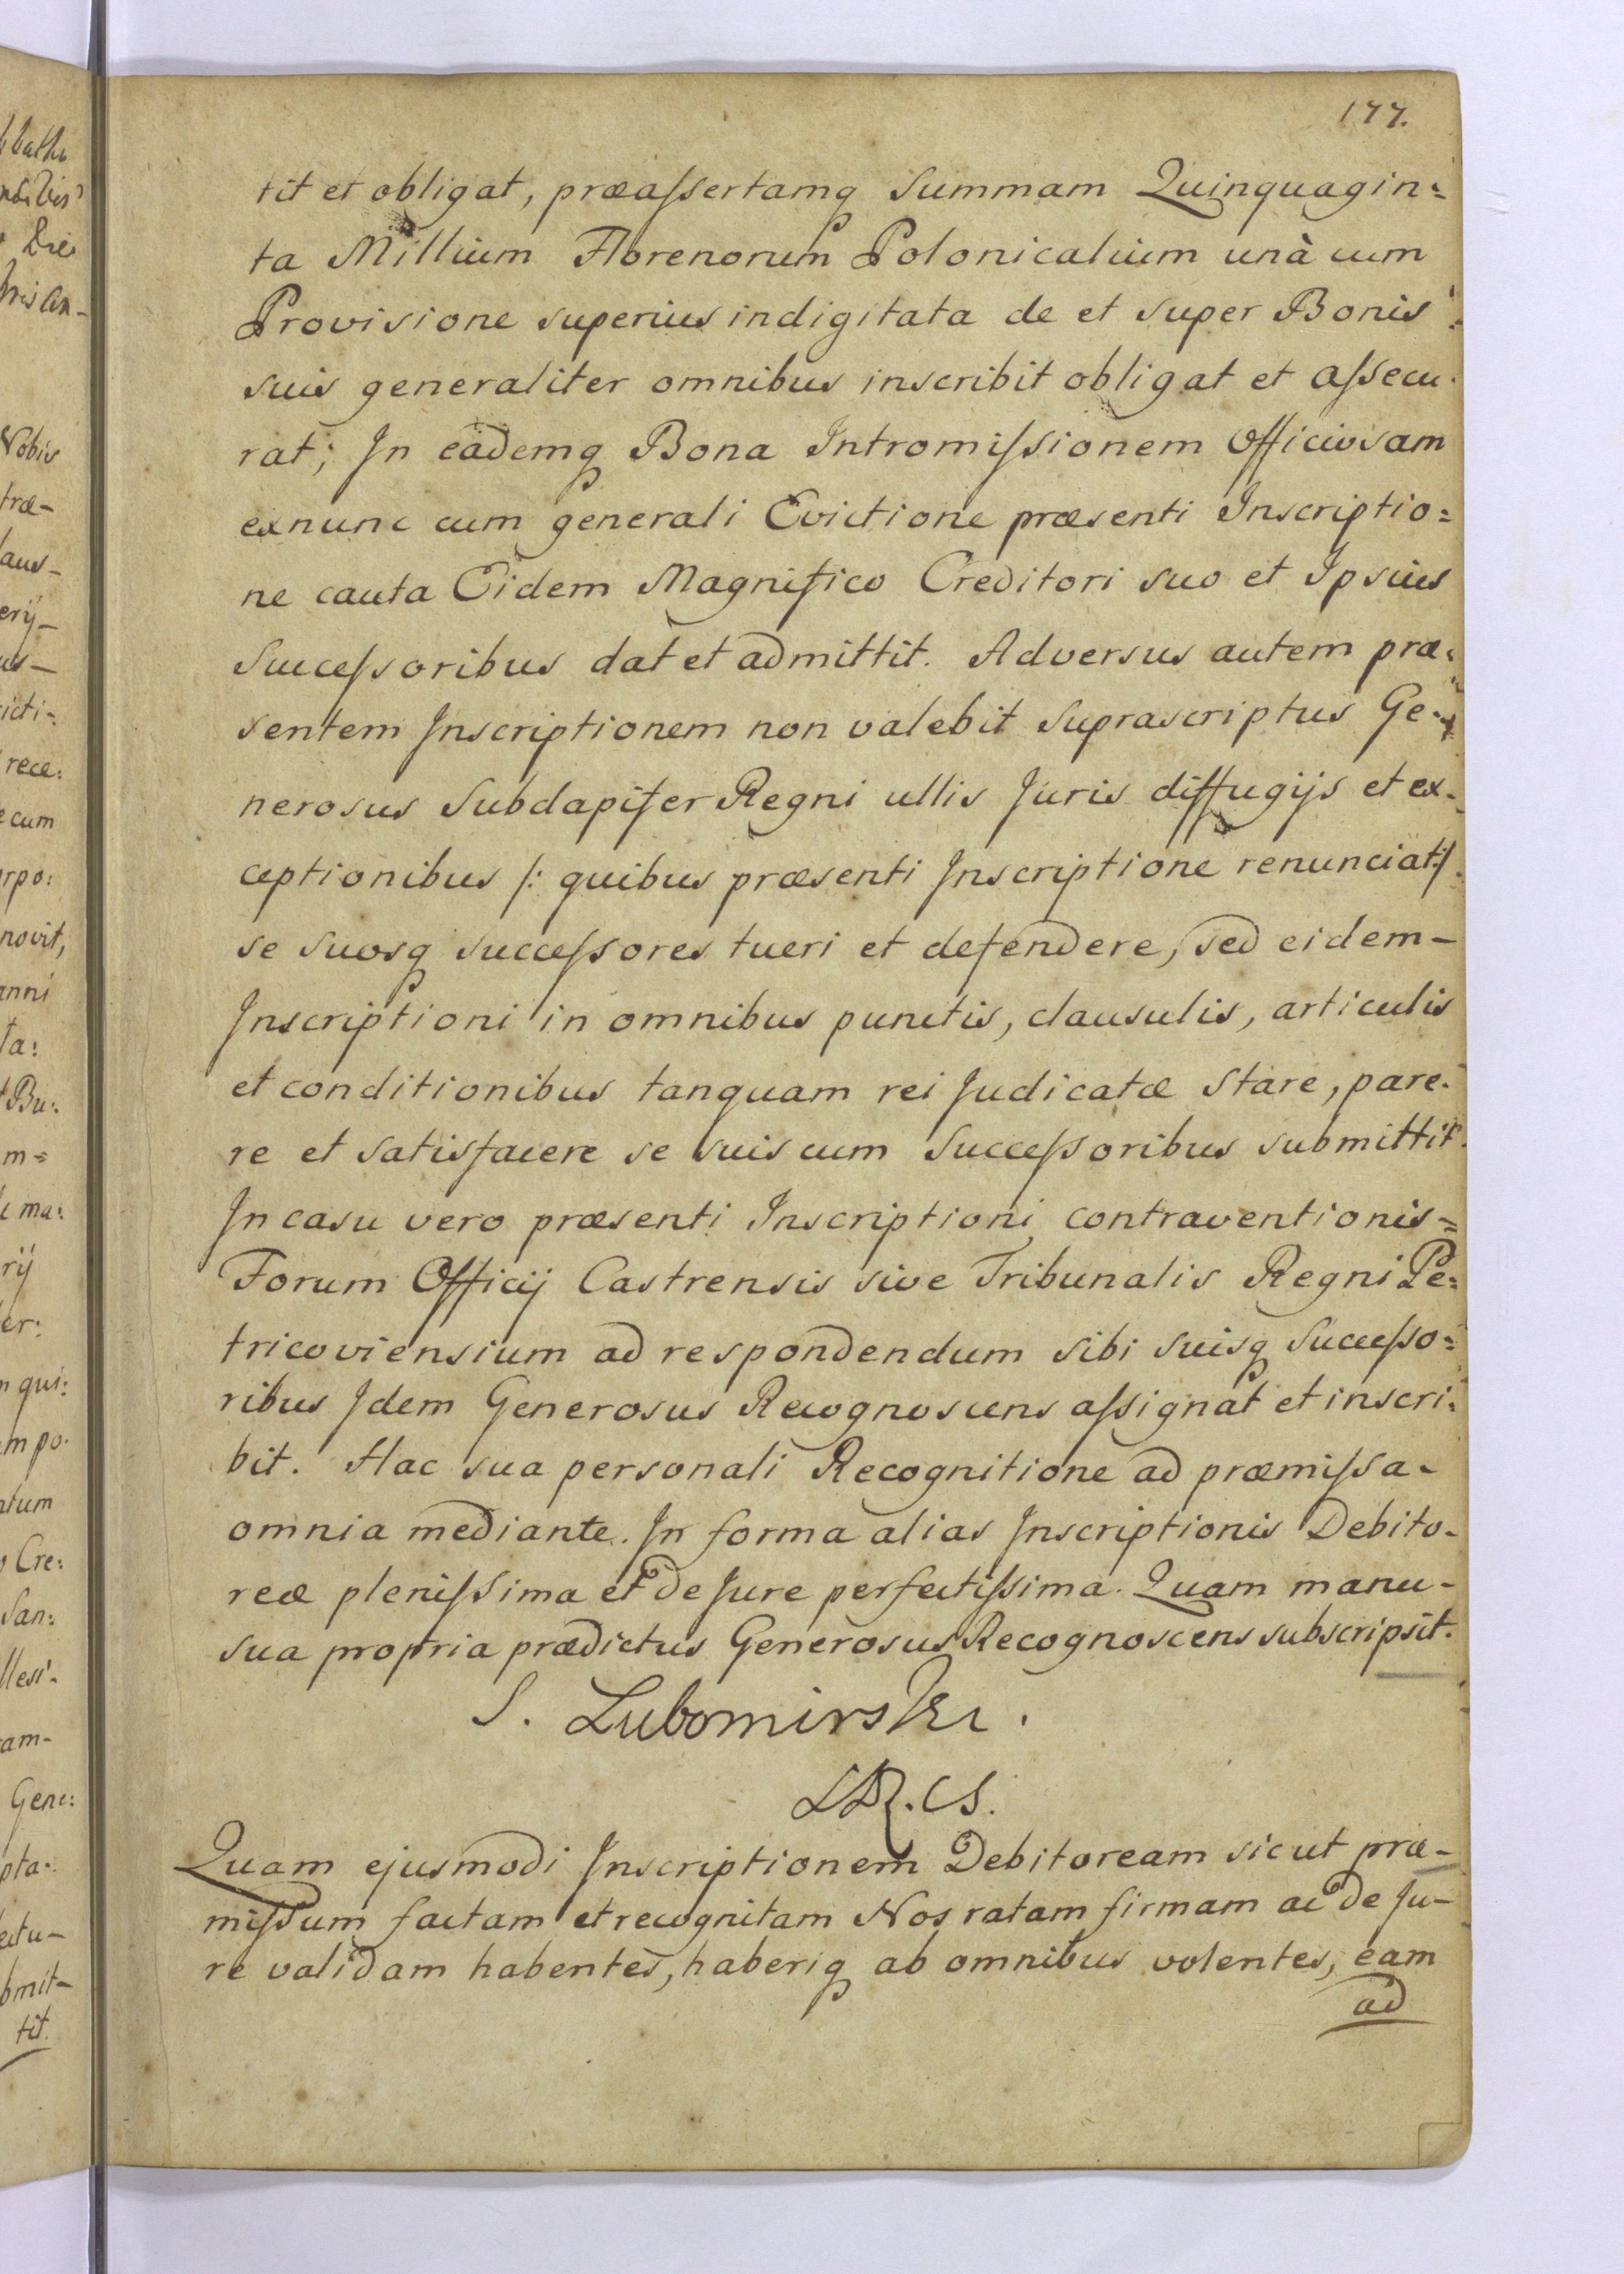 177.
tit et obligat, præassertamq Summam Quinquagin=
ta Millium Florenorum Polonicalium unà cum
Provisione superius indigitata de et super Bonis
suis generaliter omnibus inscribit obligat et assecu-
rat; In eademq Bona Intromissionem Officiosam
exnunc cum generali Evictione præsenti Inscriptio=
ne cauta Eidem Magnifico Creditori suo et Ipsius
Successoribus dat et admittit. Adversus autem præ=
sentem Inscriptionem non valebit Suprascriptus Ge-
nerosus Subdapifer Regni ullis Juris diffugijs et ex-
ceptionibus /: quibus præsenti Inscriptione renunciat :/
se suosq successores tueri et defendere, sed eidem-
Inscriptioni in omnibus punctis, clausulis, articulis
et conditionibus tanquam rei Judicatæ stare, pare-
re et satisfacere se suis cum Successoribus submittit.
In casu vero præsenti Inscriptioni contraventionis=
Forum Officij Castrensis sive Tribunalis Regni Pe=
tricoviensium ad respondendum sibi suisq Successo=
ribus Idem Generosus Recognoscens assignat et inscri=
bit. Hac sua personali Recognitione ad præmissa-
omnia mediante. In forma alias Inscriptionis Debito-
reæ plenissima et de Jure perfectissima. Quam manu-
sua propria prædictus Generosus Recognoscens subscripsit.
S. Lubomirski.
Quam ejusmodi Inscriptionem Debitoream sicut præ-
missum factam et recognitam Nos ratam firmam ac de Ju-
re validam habentes, haberiq ab omnibus volentes, eam
ad